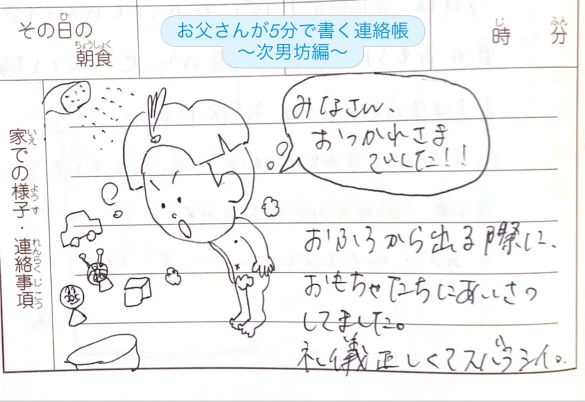 お父さんが5分で書く連絡帳
〜次男坊編〜
その日の
朝食
時 分
家での様子・連絡事項
みなさん、
おつかれさま
でした!!
おふろから出る際に、
おもちゃたちにあいさつ
してました。
礼儀正しくてスバラシイ。